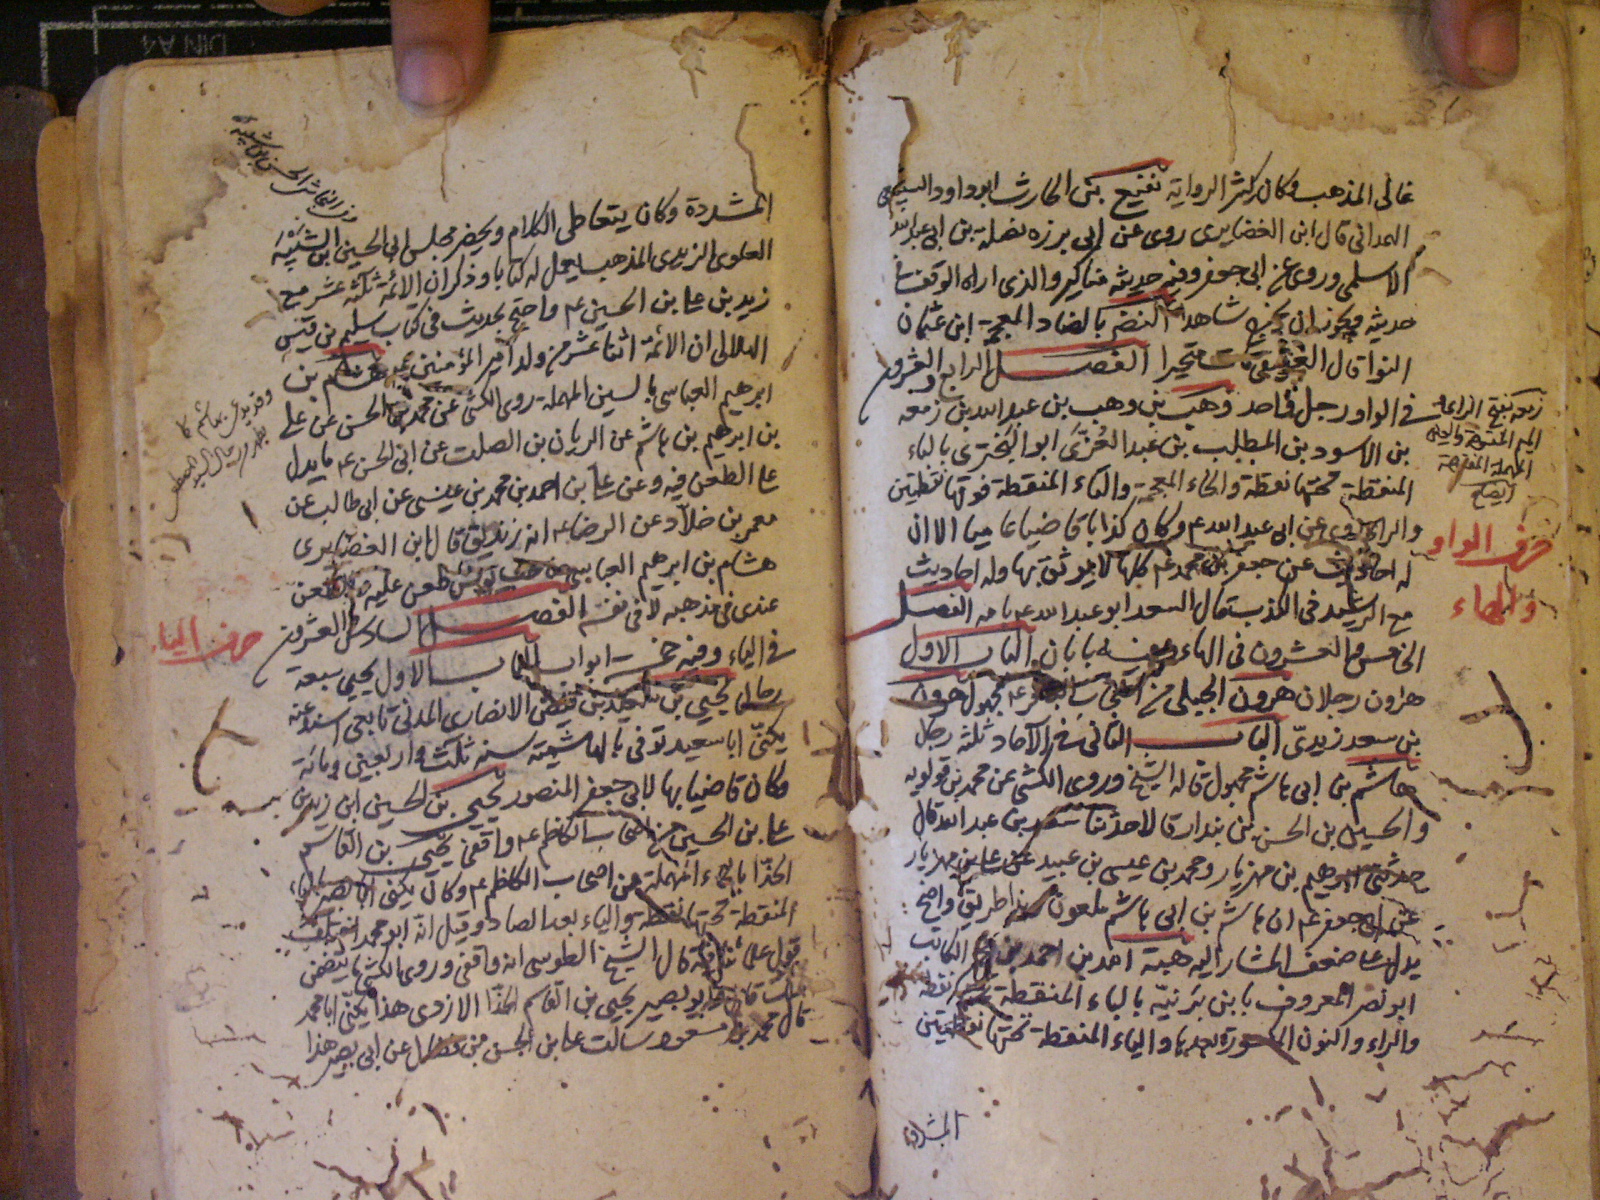 غالى المذهب وكان كثير الرواية نفيع بن الحارث ابوداود السبيعى
الهمدانى قال ابن الغضايرى روى عن ابى برزه نضلة بن ابى عبدالله
الاسلمى وروى عن ابى جعفر وفيه حديثه مناكير والذى اراه الوقف فى
حديثه ويجوز ان يخرج شاهدا النضر بالضاد المعجمة ابن عثمان
النوا قال العقيقى مات متحيرا الفصل الرابع والعشرون
فى الواو رجل واحد وهب بن وهب بن عبد الله بن زمعه
بن الاسود بن المطلب بن عبد العزى ابو البخترى بالباء
المنقطة تحتها نقطة والخاء المعجمة والتاء المنقطة فوقها نقطتين
والراء روى عن ابى عبد الله عم وكان كذابا قاضيا عاميا الا ان
له احاديث عن جعفر بن محمد عم كلها لا يوثق بها وله احاديث
مع الرشيد فى الكذب قال السعد ابو عبد الله عم بامه الفصل
الخامس والعشرون فى الهاء وفيه بابان الباب الاول
هارون رجلان هرون الجبلى من اصحاب الباقر عم مجهول هرون
بن سعد زيدىّ الباب الثانى فى الآحاد ثلثة رجل
هاشم بن ابى هاشم مجهول قاله الشيخ وروى الكشى عن محمد بن قولويه
والحسين بن الحسن بن بندار قالا حدثنا سعد بن عبد الله قال
حدثنى ابرهيم بن مهزيار ومحمد بن عيسى بن عبيد عن على بن مهزيار
عن ابى جعفر عم ان هاشم بن ابى هاشم ملعون وهذا طريق واضح
يدل على ضعف المشار اليه هبة الله بن احمد بن محمد الكاتب
ابو نصر المعروف بابن برنيّه بالباء المنقطة تحتها نقطة
والراء والنون المكسورة بعدها والياء المنقطة تحتها نقطتين
المشددة
زمعه بفتح الزاء
الميم المفتوحة والعين
المهملة المفتوحة
ايضاح
حرف الواو
والهاء
المشددة وكان يتعاطى الكلام ويحضر مجلس ابى الحسين ابن الشيبة
العلوى الزيدى المذهب فعمل له كتابا وذكر ان الائمة ثلثة عشر مع
زيد بن على بن الحسين عم واحتج بحديث فى كتاب سليم بن قيس
الهلالى ان الائمة اثنا عشر من ولد امير المؤمنين عم هشام بن
ابرهيم العباسى بالسين المهملة روى الكشى عن محمد بن الحسن عن على
بن ابرهيم بن هاشم عن الريان بن الصلت عن ابى الحسن عم ما يدل
على الطعن فيه وعن على بن احمد بن محمد بن عيسى عن ابى طالب عن
معمر بن خلاد عن الرضا عم انه زنديق قال ابن الغضايرى
هشام بن ابرهيم العباسى صاحب يونس طعن عليه والطعن
عندى فى مذهبه لا فى نفسه الفصل السادس والعشرون
فى الياء وفيه خمسة ابواب الباب الاول يحيى سبعة
رجال يحيى بن سعيد بن قيس الانصارى المدنى تابعى اسند عنه
يكنىّ ابا سعيد توفى بالهاشمية سنه ثلث واربعين ومائة
وكان قاضيا بها لابى جعفر المنصور يحيى بن الحسين ابن زيد بن
على بن الحسين من اصحاب الكاظم عم واقفى يحيى بن القاسم
الحذّا بالحاء المهملة من اصحاب الكاظم عم وكان يكنى ابا بصير بالباء
المنقطة تحتها نقطة والياء بعد الصاد وقيل انه ابو محمد اختلف
قول علمائنا فيه قال الشيخ الطوسى انه واقفى وروى الكشى ما يتضمن
ذلك قال وابو بصير يحيى بن القاسم الحذّا الازدى هذا يكنى ابا محمد
قال محمد بن مسعود سالت على بن الحسن بن فضال عن ابى بصير هذا
حرف الياء